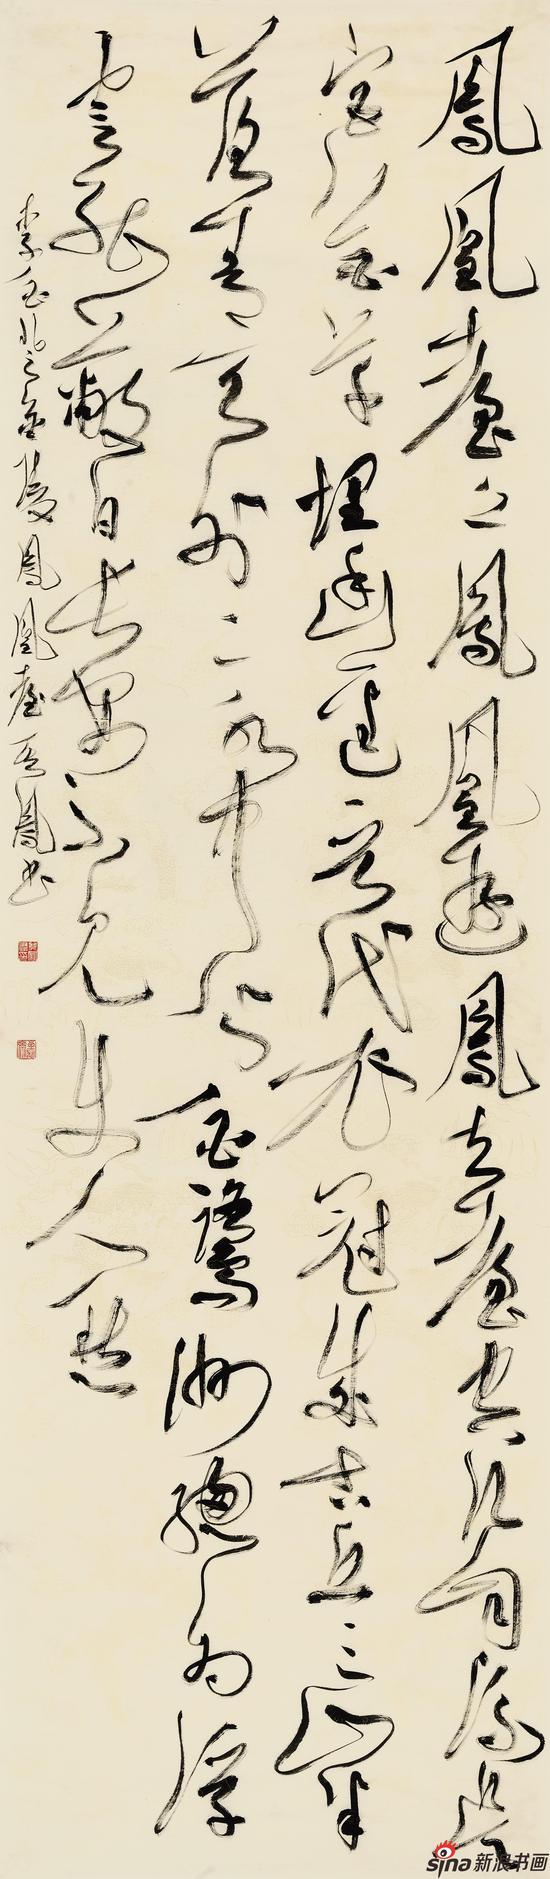 鳳凰臺上鳳凰遊鳳去臺空江自流吳
宮花草埋幽徑晉代衣冠成古丘三山半
落青天外二水中分白鷺洲總為浮
雲能蔽日長安不見使人愁
李白登金陵鳳凰臺鳳书
sina 新浪书画